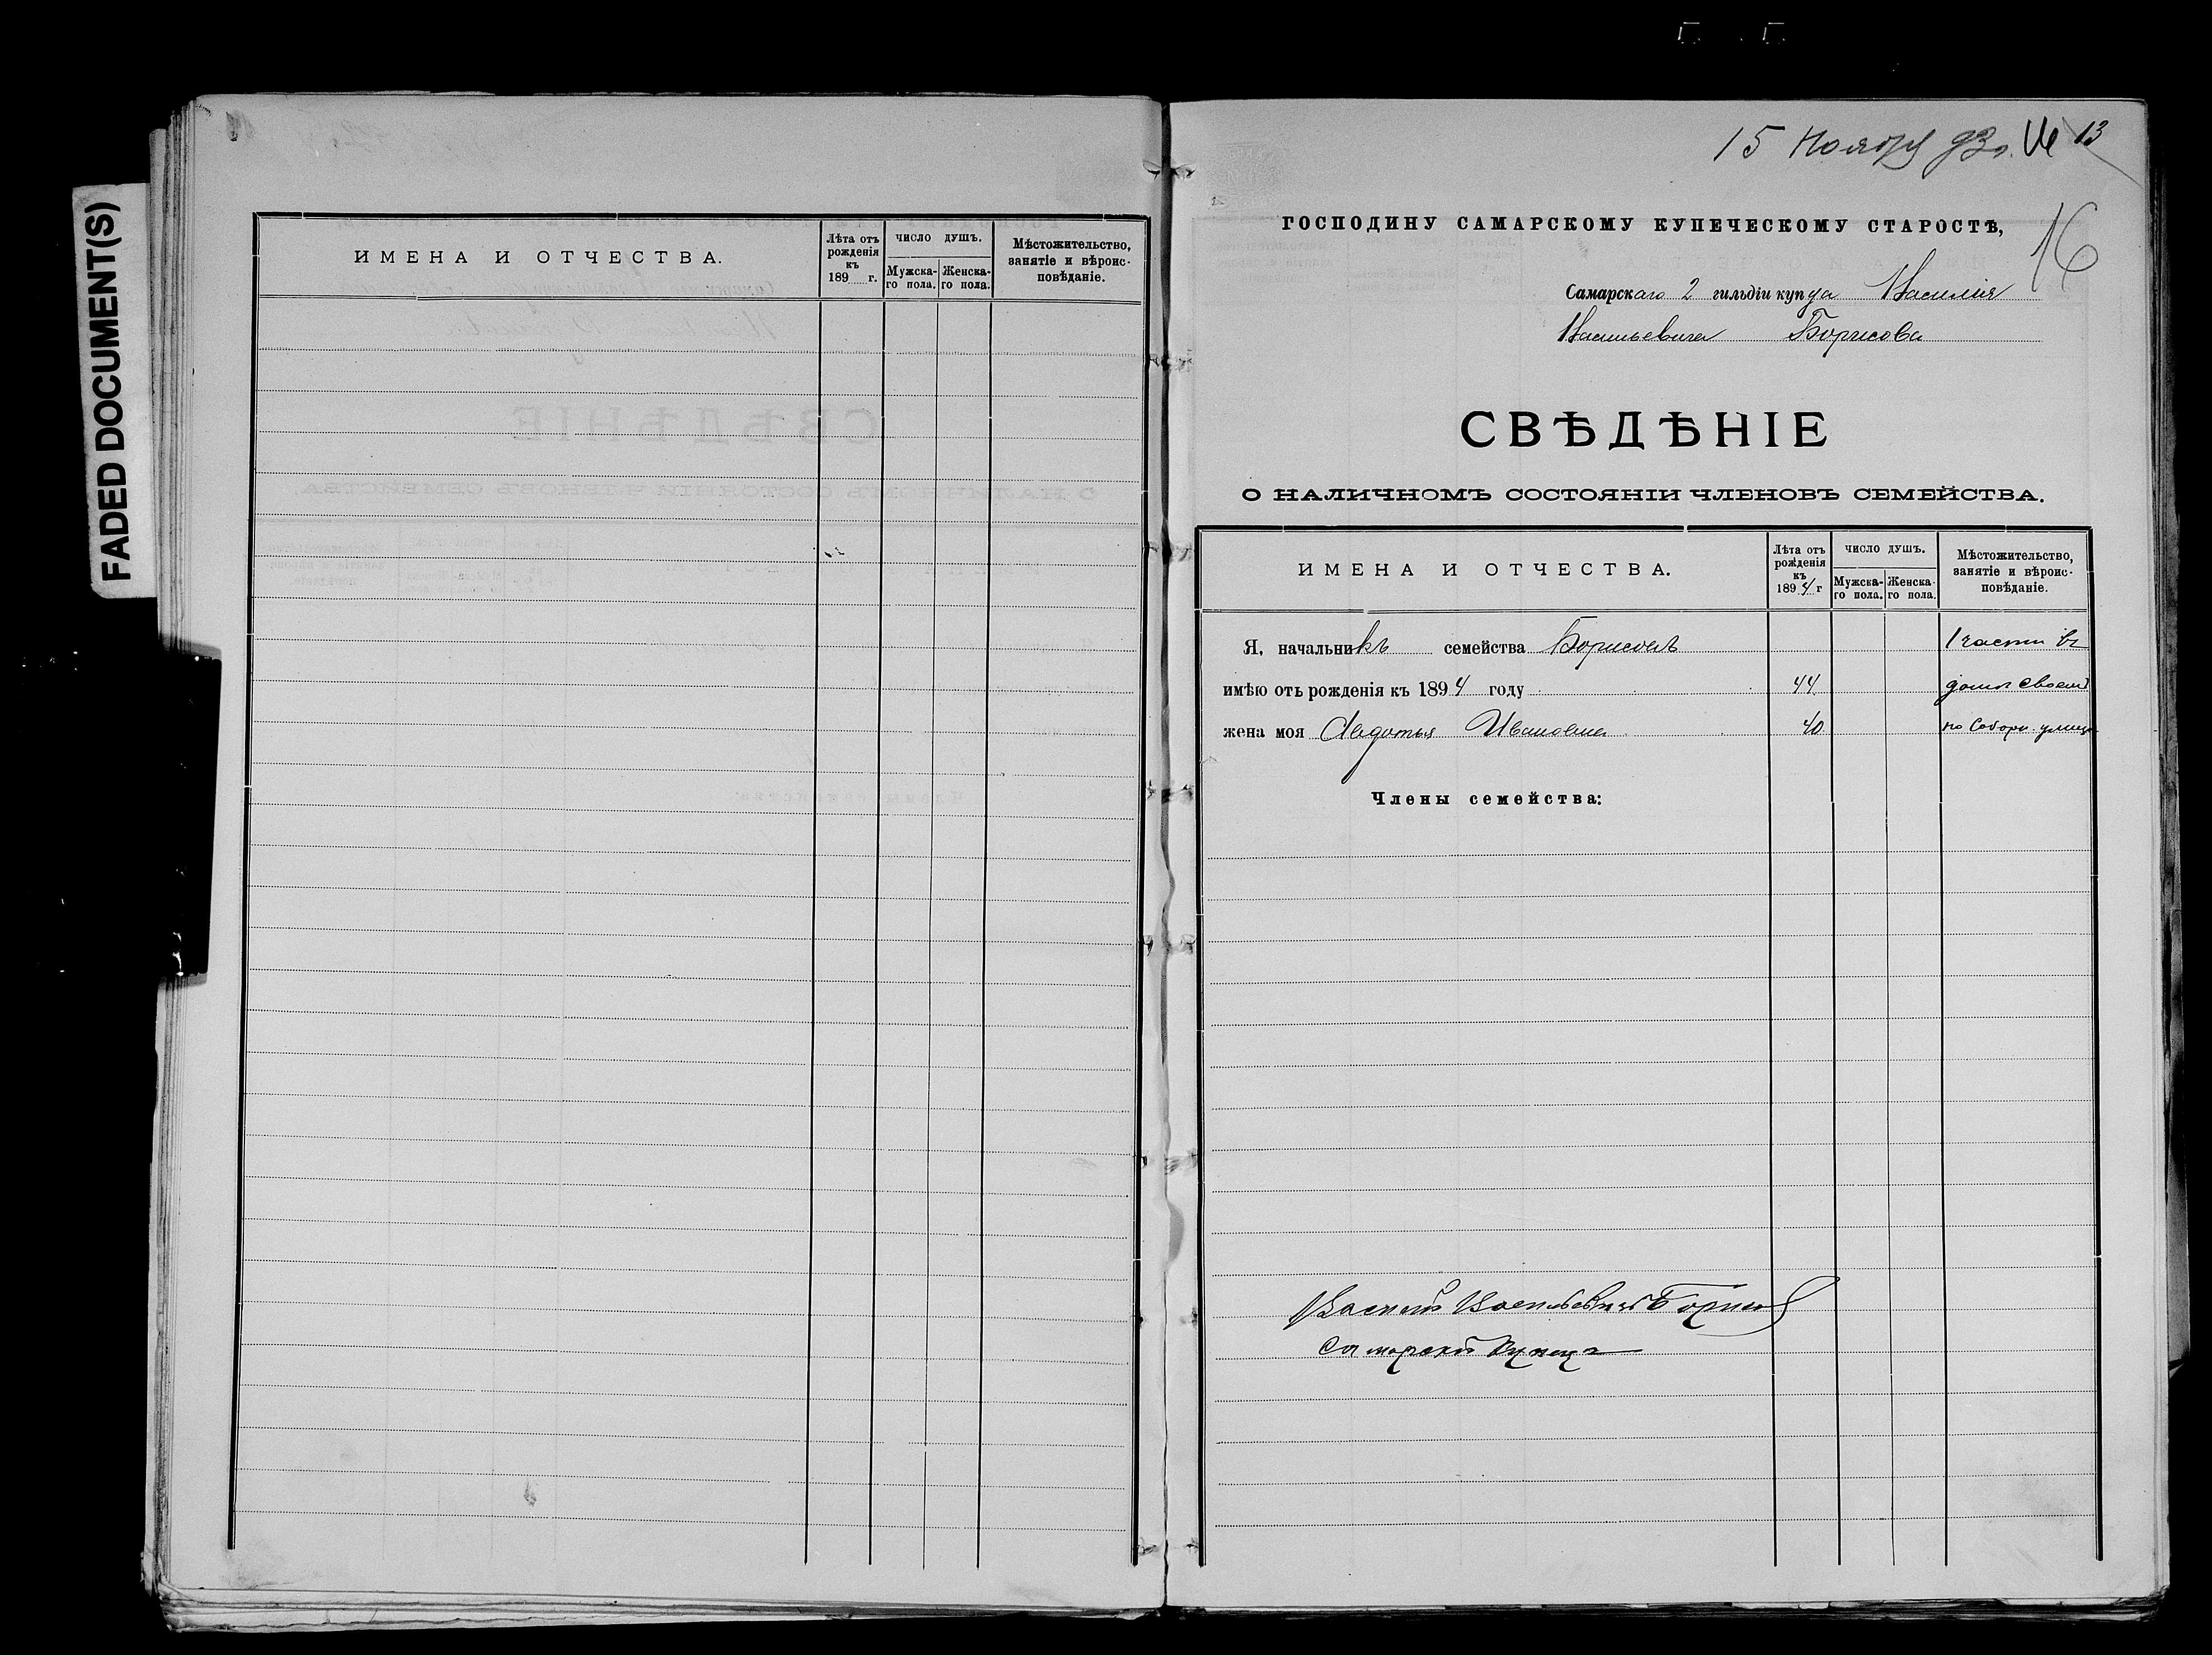 FADED DOCUMENT(S)
ИМЕНА И ОТЧЕСТВА.
Лѣта отъ рожденія къ 189 г.
ЧИСЛО ДУШЪ.
Мужска-го пола.
Женска-го пола.
Мѣстожительство, занятіе и вѣроис-повѣданіе.
15 Ноября 93 г. № 13
16
ГОСПОДИНУ САМАРСКОМУ КУПЕЧЕСКОМУ СТАРОСТѢ,
Самарскаго 2 гильдіи купца Василія
Васильевича Борисова
СВѢДѢНІЕ
О НАЛИЧНОМЪ СОСТОЯНІИ ЧЛЕНОВЪ СЕМЕЙСТВА.
ИМЕНА И ОТЧЕСТВА.
Лѣта отъ рожденія къ 1894 г
ЧИСЛО ДУШЪ.
Мужска-го пола.
Женска-го пола.
Мѣстожительство, занятіе и вѣроис-повѣданіе.
Я, начальникъ семейства Борисовъ 1 части въ
имѣю отъ рожденія къ 1894 году 44 домѣ своем
жена моя Авдотья Ивановна 40 по Соборн. улицѣ
Члены семейства:
Василій Васильевичъ Борисов
Самарской Купецъ